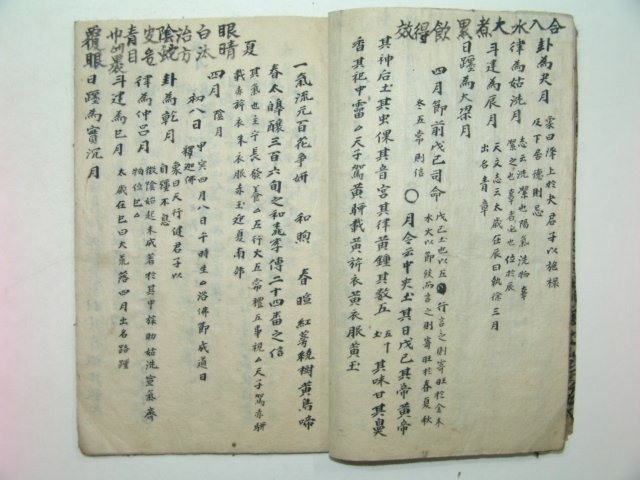 合入水大煮累飲得效
卦為夬月
彖曰澤上於天君子以施祿
及下居德則忌
律為姑洗月
志云洗潔也陽氣洗物辜
潔之也 位於辰
斗建為辰月
天文志云太歲在辰曰執徐三月
出名青章
日躔為大梁月
四月節前戊己司命
戊己土也以五行言之則寄旺於金木
水火以節候而言之則寄旺於春夏秋
冬五常則信
○月令云中央土其日戊己其帝黃帝
其神后土其虫倮其音宮其律黃鍾其數五 其味甘其臭
香其祀中霤 天子駕黃騂載黃旂衣黃衣服黃玉
一氣流元百花爭妍 和煦 春暄 紅萼繞樹黃鳥啼
春 太皥釀三百六旬之和 李傳二十四番之信
夏
其氣也主于長發養 五行火五常禮五事視 天子駕赤騂
載赤旂衣朱衣服赤玉迎夏南郊
四月 陰月
初八日
申寅四月八日午時生 浴佛節成道日
釋迦佛
卦為乾月
彖曰天行健君子以
自彊不息
律為仲呂月
微陰始起未成著於其中旅助姑洗宣氣齊
物位巳
斗建為巳月
太歲在巳曰大荒落四月出名路踵
日躔為實沉月
眼睛
白汰
治方
陰蛇
青目
眼